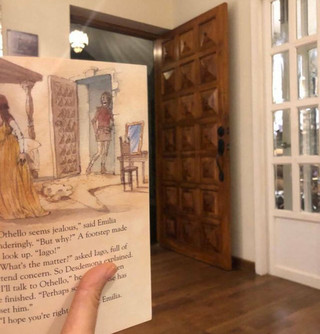 Othello seems jealous," said Emilia
nderingly. "But why?" A footstep made
look up. "Iago!"
"What's the matter?" asked Iago, full of
tend concern. So Desdemona explained.
I'll talk to Othello," he
e finished. "Perhaps has
set him."
"I hope you're right Emilia.